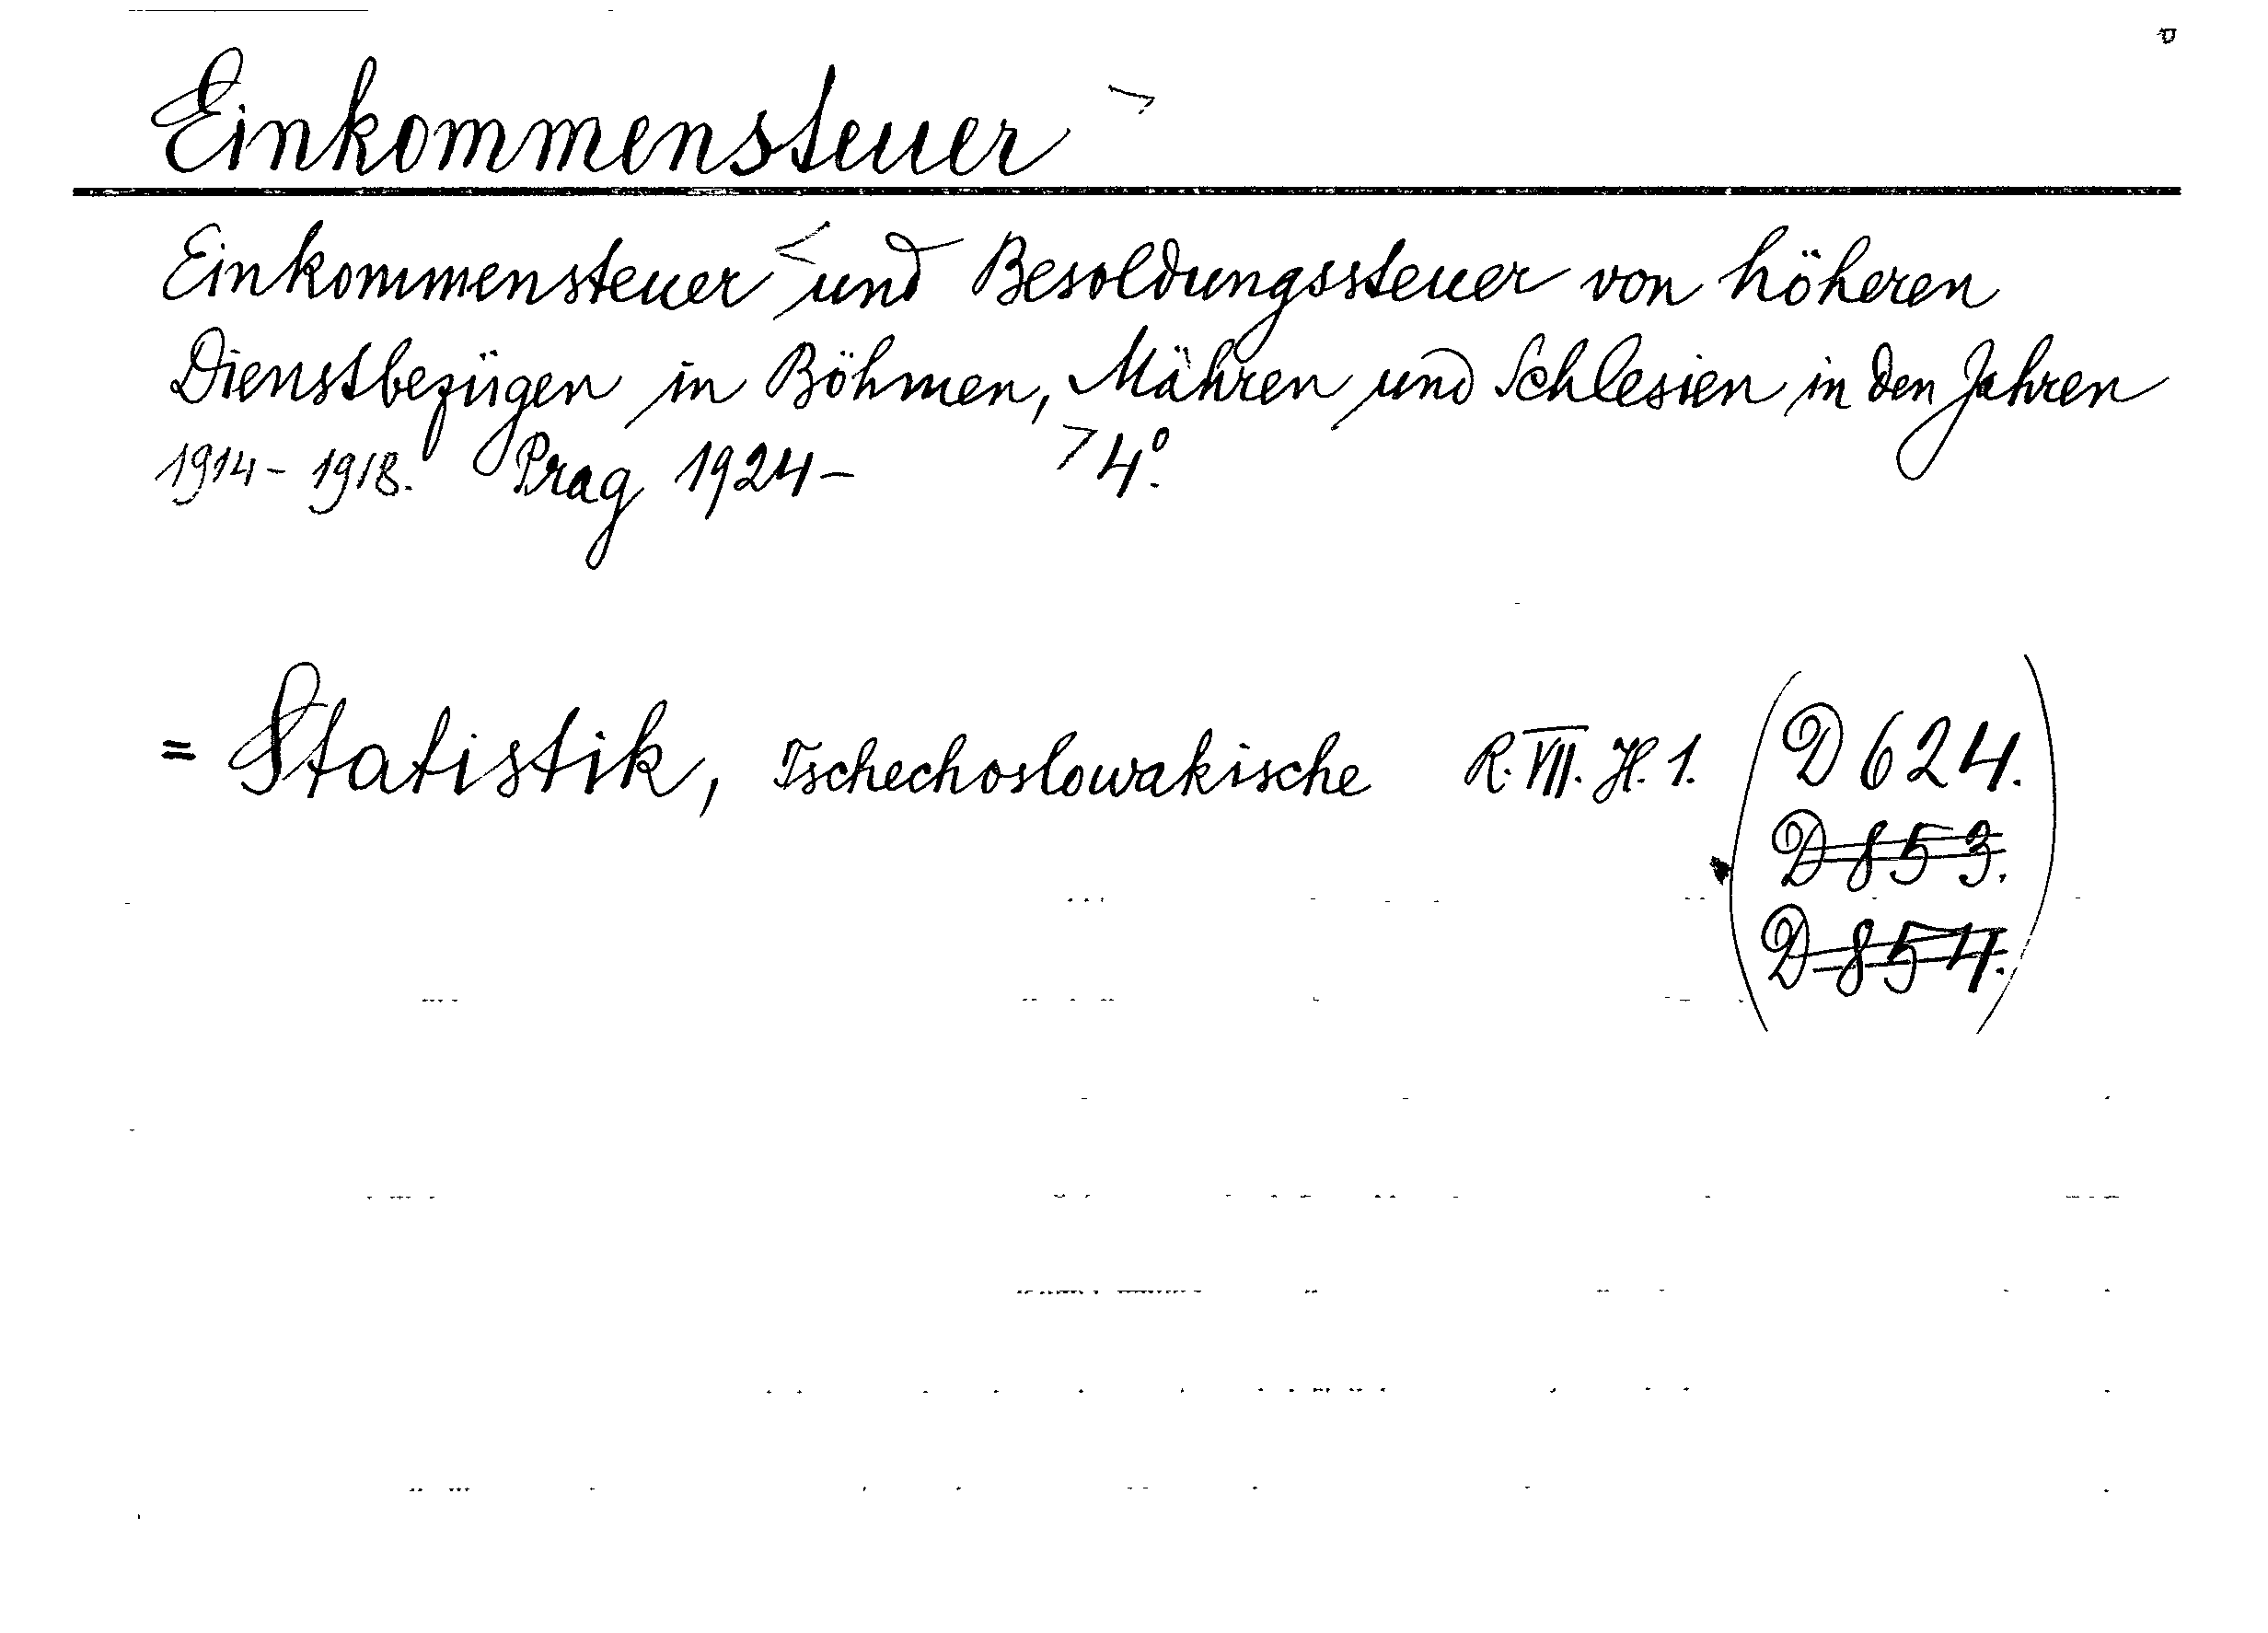 Einkommensteuer >
Einkommensteuer < und Besoldungssteuer von höheren
Dienstbezügen in Böhmen, Mähren und Schlesien in den Jahren
1914-1918. Prag 1924- > 4°.
= Statistik, Tschechoslowakische R. VII. H. 1. (D 624.
D 853.
D 854.)